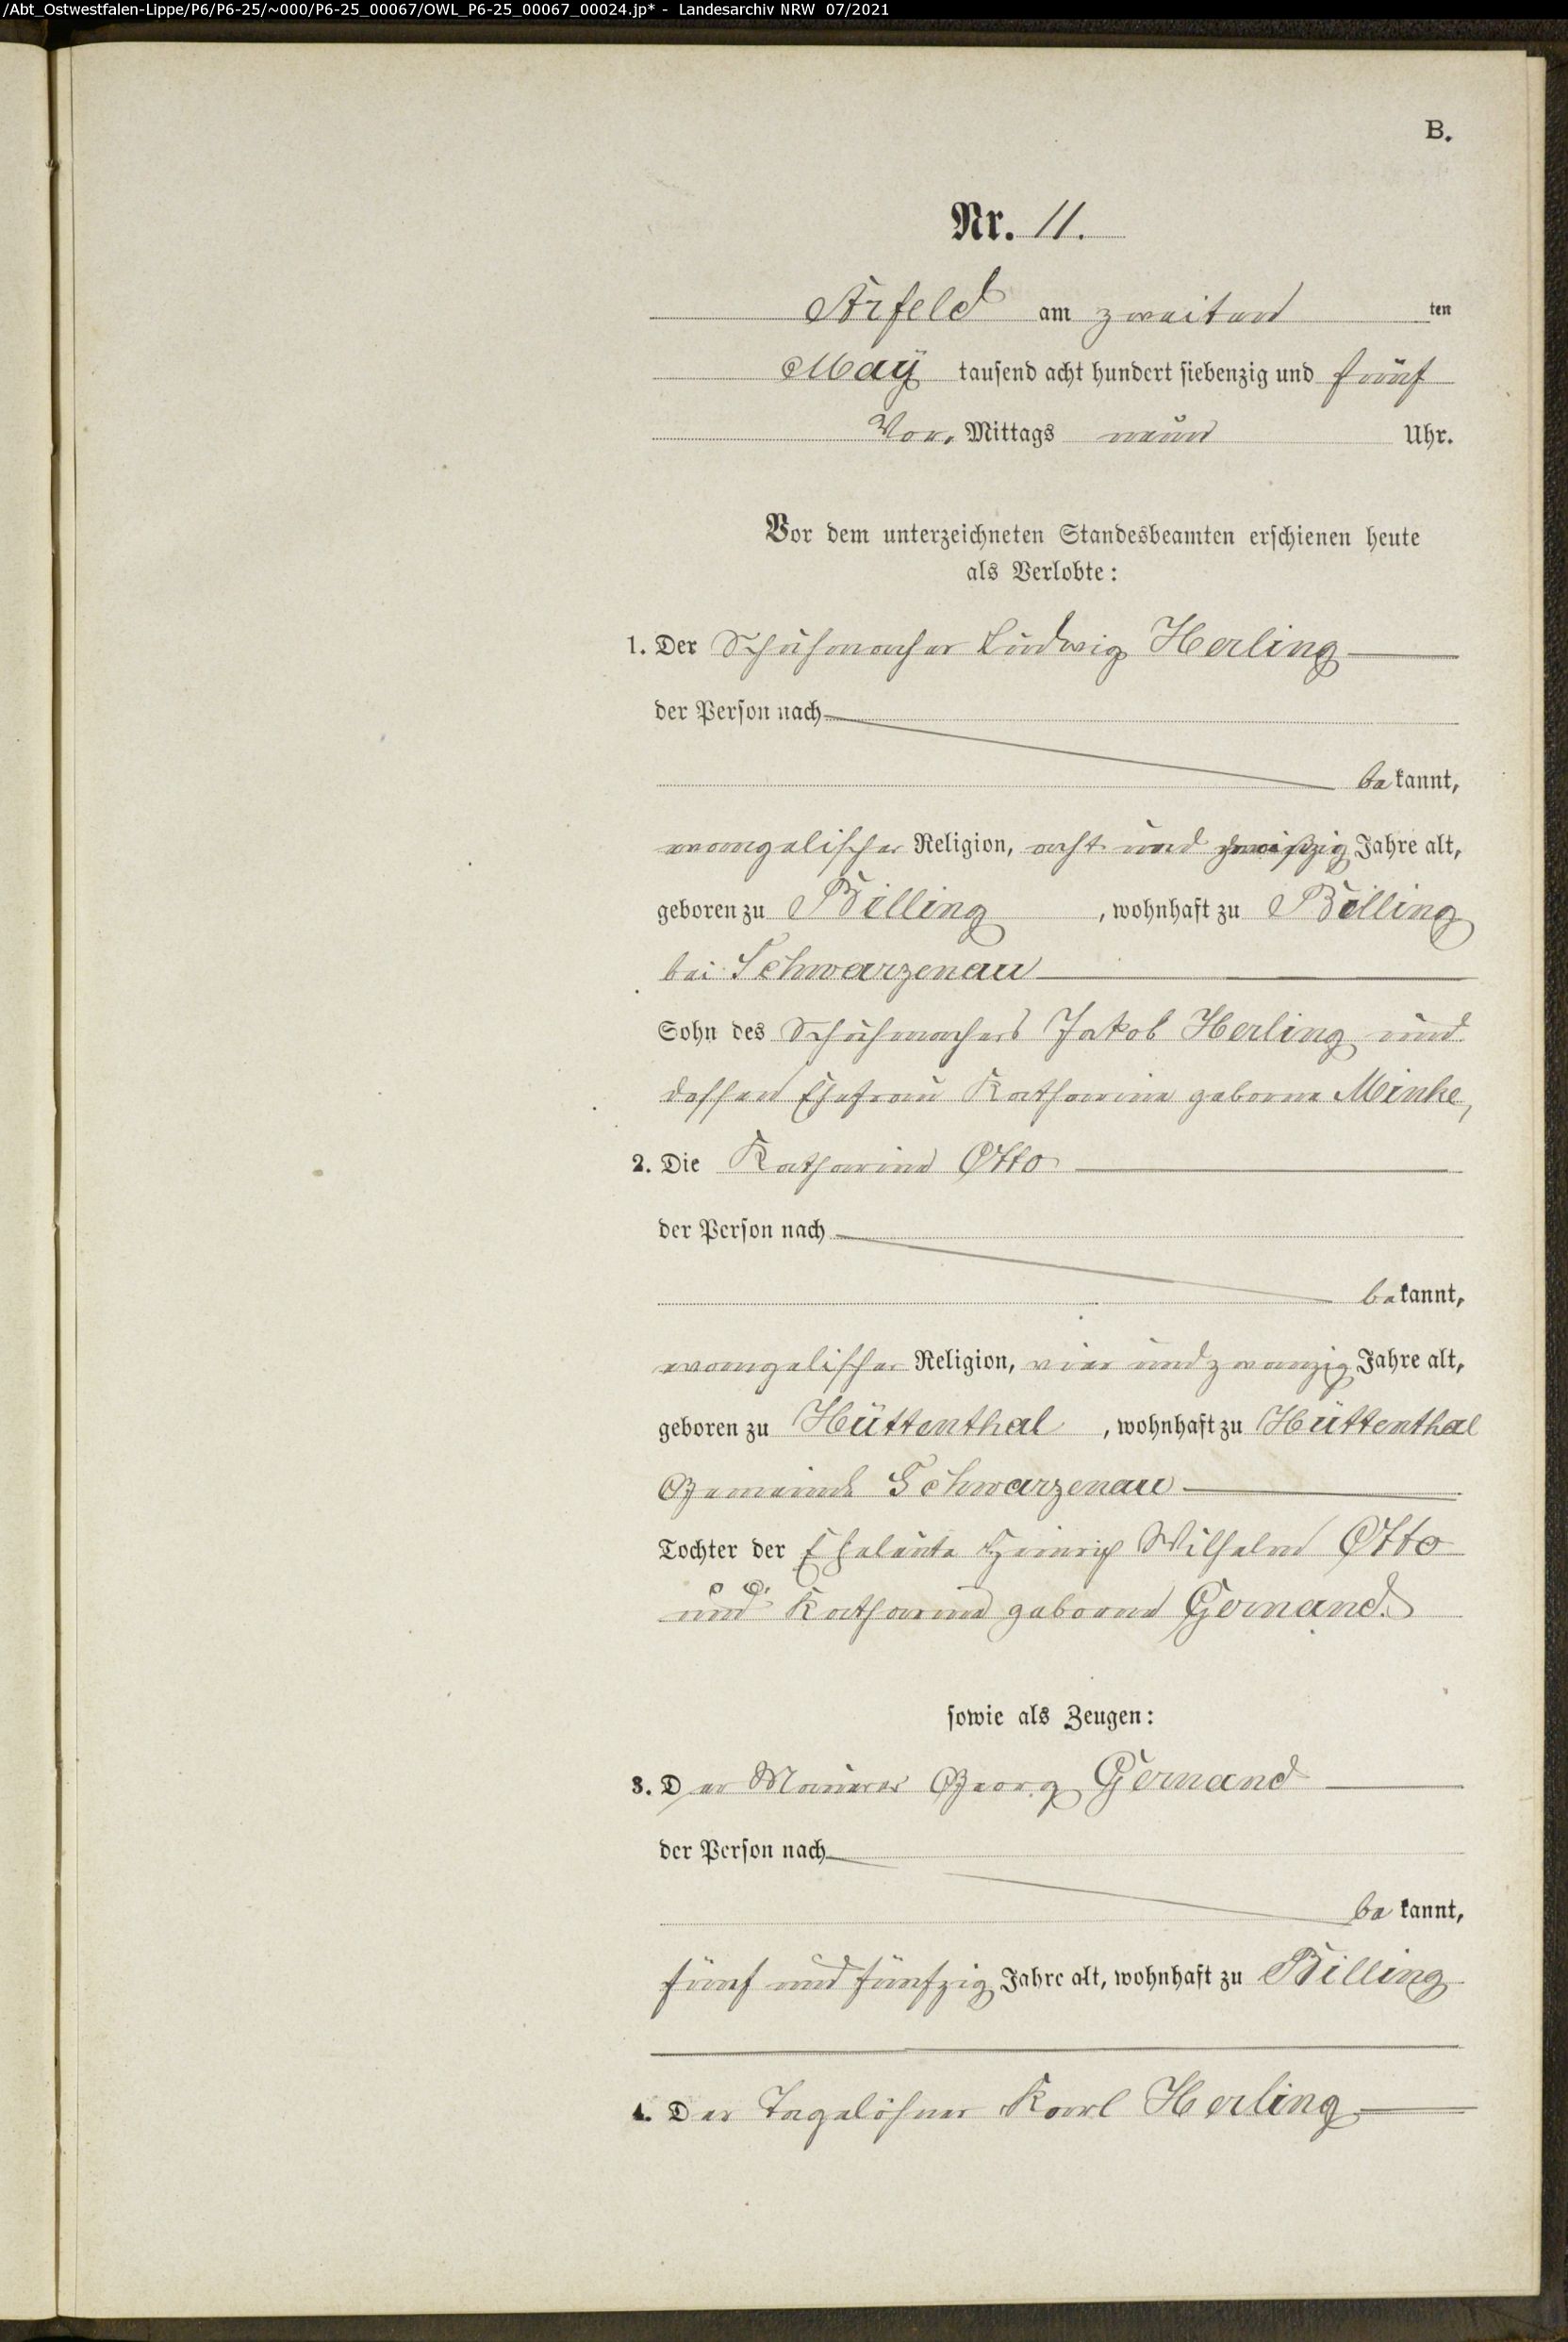 /Abt_Ostwestfalen-Lippe/P6/P6-25/~000/P6-25_00067/OWL_P6-25_00067_00024.jp* - Landesarchiv NRW 07/2021
B.
Nr. 11.
Arfeld am zweiten ten
Maÿ tausend acht hundert siebenzig und fünf
Vor. Mittags neun Uhr.
Vor dem unterzeichneten Standesbeamten erschienen heute
als Verlobte:
1. Der Schuhmacher Ludwig Herling
der Person nach
be kannt,
evangelischer Religion, acht und Jahre alt,
geboren zu Billing , wohnhaft zu Billing
bei Schwarzenau
Sohn des Schuhmachers Jakob Herling und
dessen Ehefrau Katharine geborne Minke,
2. Die Katharine Otto
der Person nach
bekannt,
evangelischer Religion, vier und zwanzig Jahre alt,
geboren zu Hüttenthal , wohnhaft zu Hüttenthal
Gemeinde Schwarzenau
Tochter der Eheleute Heinrich Wilhelm Otto
und Katharine geborne Gernand.
sowie als Zeugen:
3. Der Maurer Georg Gernand
der Person nach
be kannt,
fünf und fünfzig Jahre alt, wohnhaft zu Billing
4. Der Tagelöhner Karl Herling